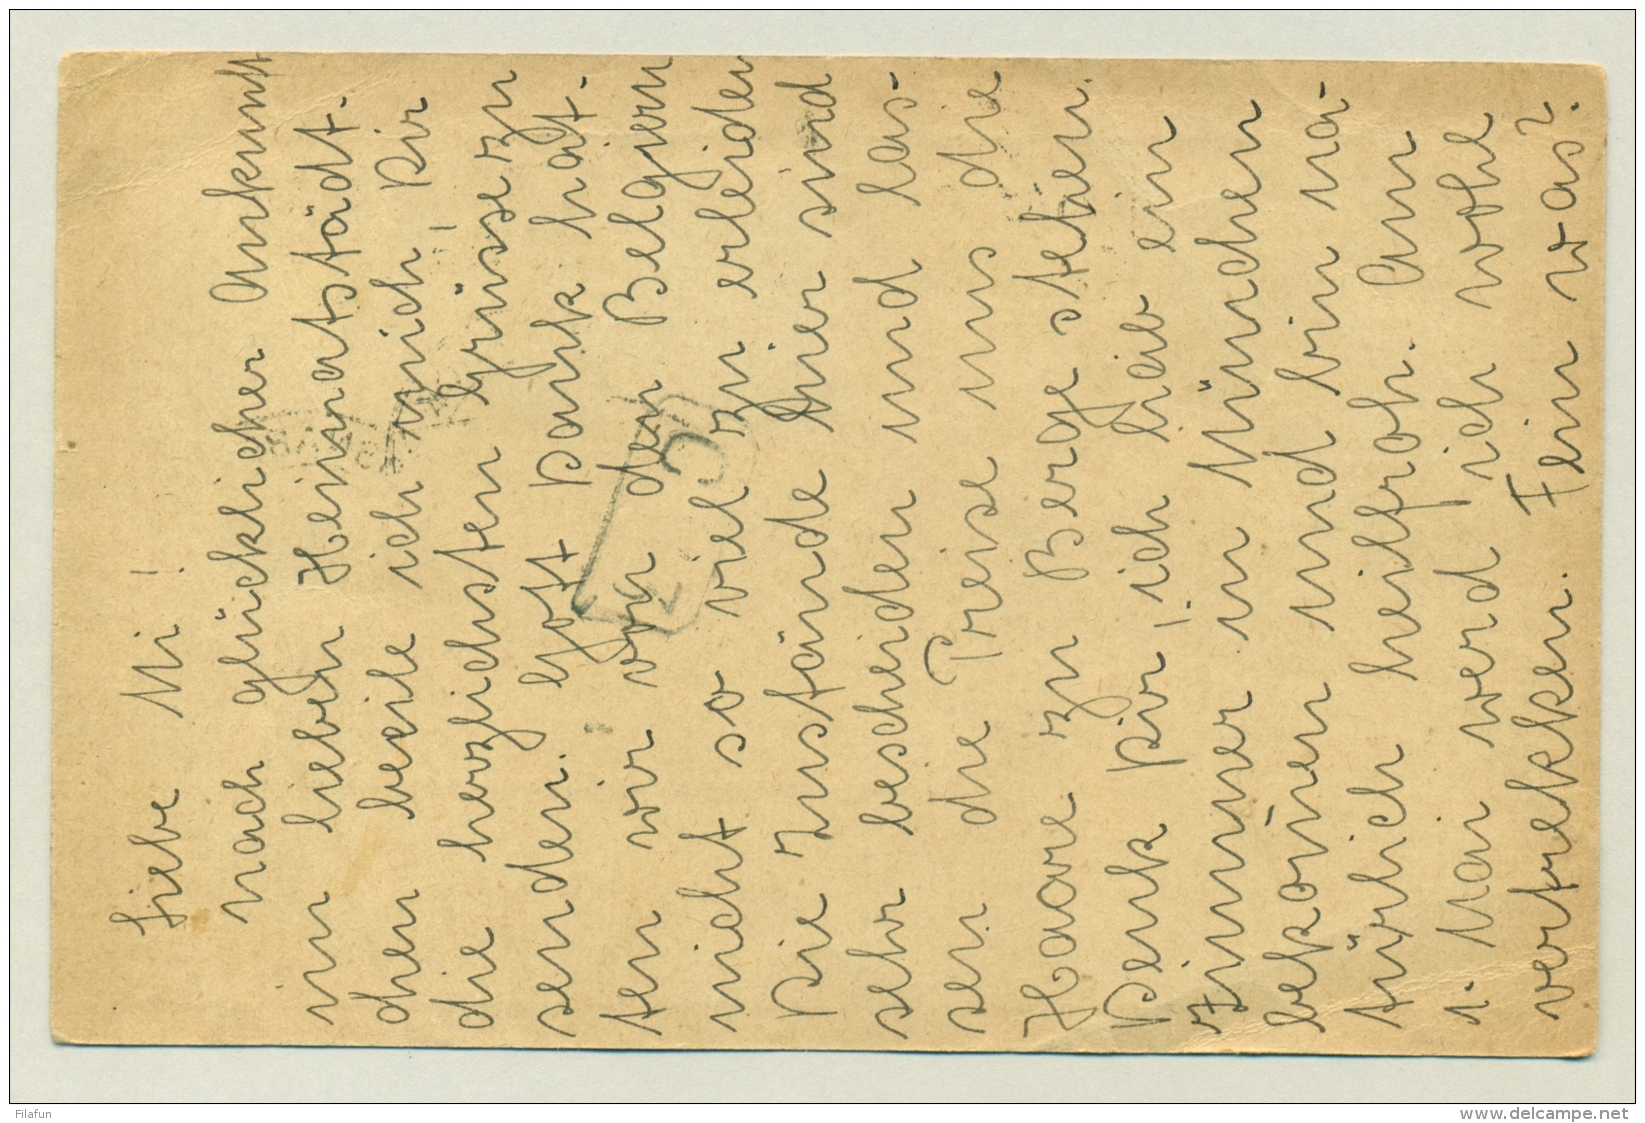 Liebe Mi!
nach glücklicher Ankunft
im lieben Heimatstädt-
chen beeile ich mich, Dir
die herzlichsten Grüsse zu
senden. Gott Dank hat-
ten wir von den Belgiern
nicht so viel zu erleiden
Die Zustände hier sind
sehr bescheiden und las-
sen die Preise uns die
Haare zu Berge stehen.
Denk Dir, ich hab ein
Zimmer in München
bekom̄en und bin na-
türlich heilfroh. Am
1. Mai werd ich wohl
Fein was?
Filafun
www.delcampe.net